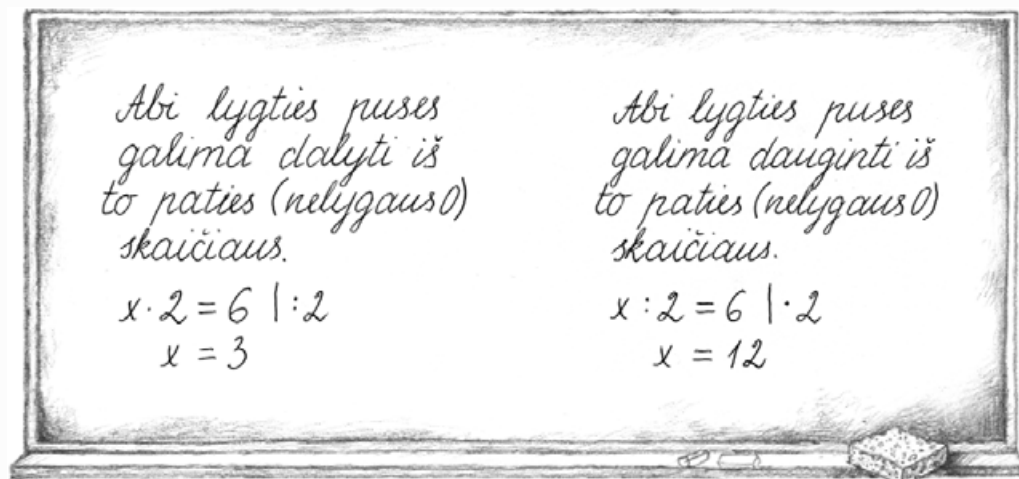 Abi lygties puses
galima dalyti iš
to paties (nelygaus 0)
skaičiaus.
x · 2 = 6 | : 2
x = 3
Abi lygties puses
galima dauginti iš
to paties (nelygaus 0)
skaičiaus.
x : 2 = 6 | · 2
x = 12